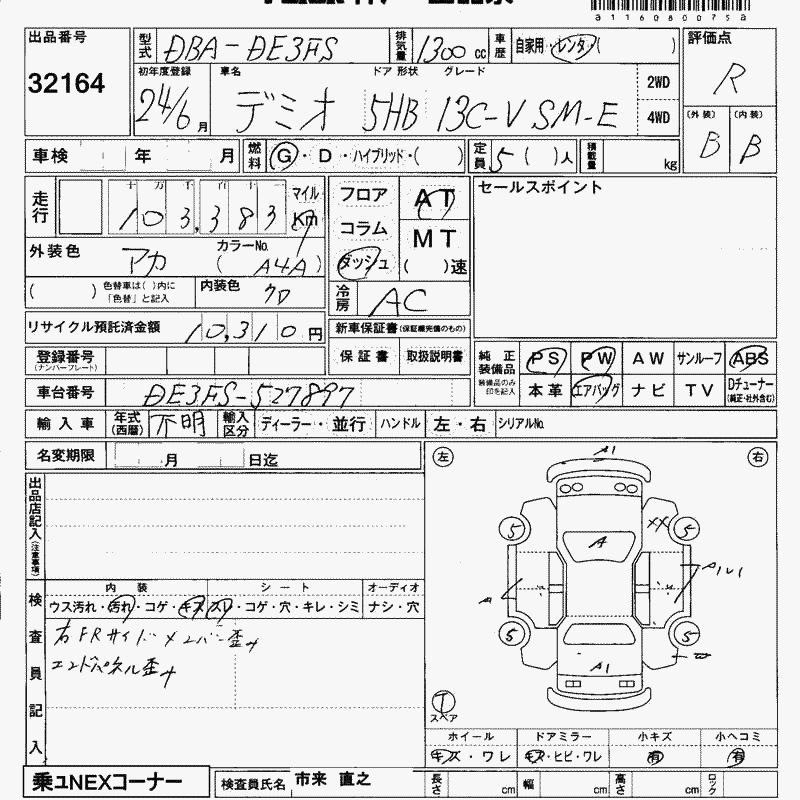 a11608007​5a
出品番号
32164
型式 DBA-DE3FS 排気量 1300cc 車歴 自家用・レンタ( )
評価点 R
初年度登録 24/6月
車名 デミオ ドア 形状 5HB グレード 13C-V SM-E
2WD
4WD
(外装) B (内装) B
車検 年 月 燃料 G・D・ハイブリッド・( ) 定員 5( )人 積載量 kg
走行 十 万 千 百 十 一 マイル
103,383 Km
フロア
コラム
ダッシュ
AT
MT
( )速
セールスポイント
外装色 アカ カラーNo. (A4A)
( ) 色替車は( )内に「色替」と記入 内装色 クロ
冷房 AC
リサイクル預託済金額 10,310円
新車保証書(保証継続のもの)
保証書 取扱説明書
登録番号
(ナンバープレート)
純正装備品 PS PW AW サンルーフ ABS
装備品のみ印を記入 本革 エアバッグ ナビ TV Dチューナー
(純正・社外含む)
車台番号 DE3FS-527897
輸入車 年式(西暦) 不明 輸入区分 ディーラー・並行 ハンドル 左・右 シリアルNo.
名変期限 月 日迄
左 右
出品店記入(注意事項)
検査員記入
内装 シート オーディオ
ウス汚れ・汚れ・コゲ・キズ スレ・コゲ・穴・キレ・シミ ナシ・穴
右FRサイドメンバー歪み
エンドパネル歪み
A1
5 XX 5
A
A A1U1
5 5
A1
T
スペア
ホイール ドアミラー 小キズ 小ヘコミ
キズ・ワレ キズ・ヒビ・ワレ 有 有
乗ュNEXコーナー
検査員氏名 市来 直之
長さ cm 幅 cm 高さ cm ロック